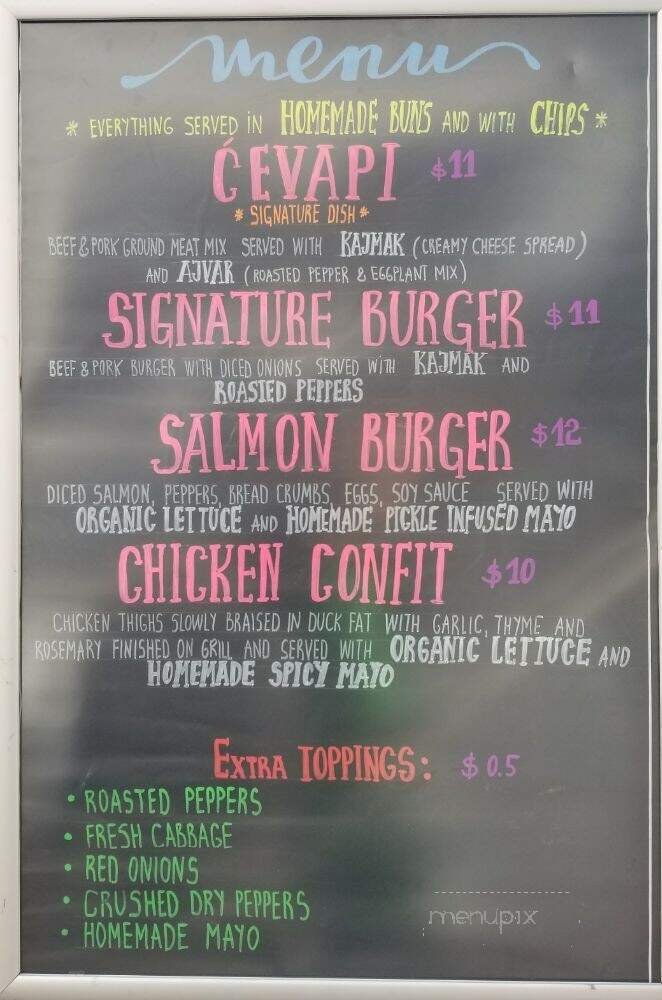 menu
* EVERYTHING SERVED IN HOMEMADE BUNS AND WITH CHIPS *
ĆEVAPI $11
* SIGNATURE DISH *
BEEF & PORK GROUND MEAT MIX SERVED WITH KAJMAK (CREAMY CHEESE SPREAD)
AND AJVAR (ROASTED PEPPER & EGGPLANT MIX)
SIGNATURE BURGER $11
BEEF & PORK BURGER WITH DICED ONIONS SERVED WITH KAJMAK AND
ROASTED PEPPERS
SALMON BURGER $12
DICED SALMON, PEPPERS, BREAD CRUMBS, EGGS, SOY SAUCE SERVED WITH
ORGANIC LETTUCE AND HOMEMADE PICKLE INFUSED MAYO
CHICKEN CONFIT $10
CHICKEN THIGHS SLOWLY BRAISED IN DUCK FAT WITH GARLIC, THYME AND
ROSEMARY FINISHED ON GRILL AND SERVED WITH ORGANIC LETTUCE AND
HOMEMADE SPICY MAYO
EXTRA TOPPINGS: $0.5
• ROASTED PEPPERS
• FRESH CABBAGE
• RED ONIONS
• CRUSHED DRY PEPPERS
• HOMEMADE MAYO
menupix